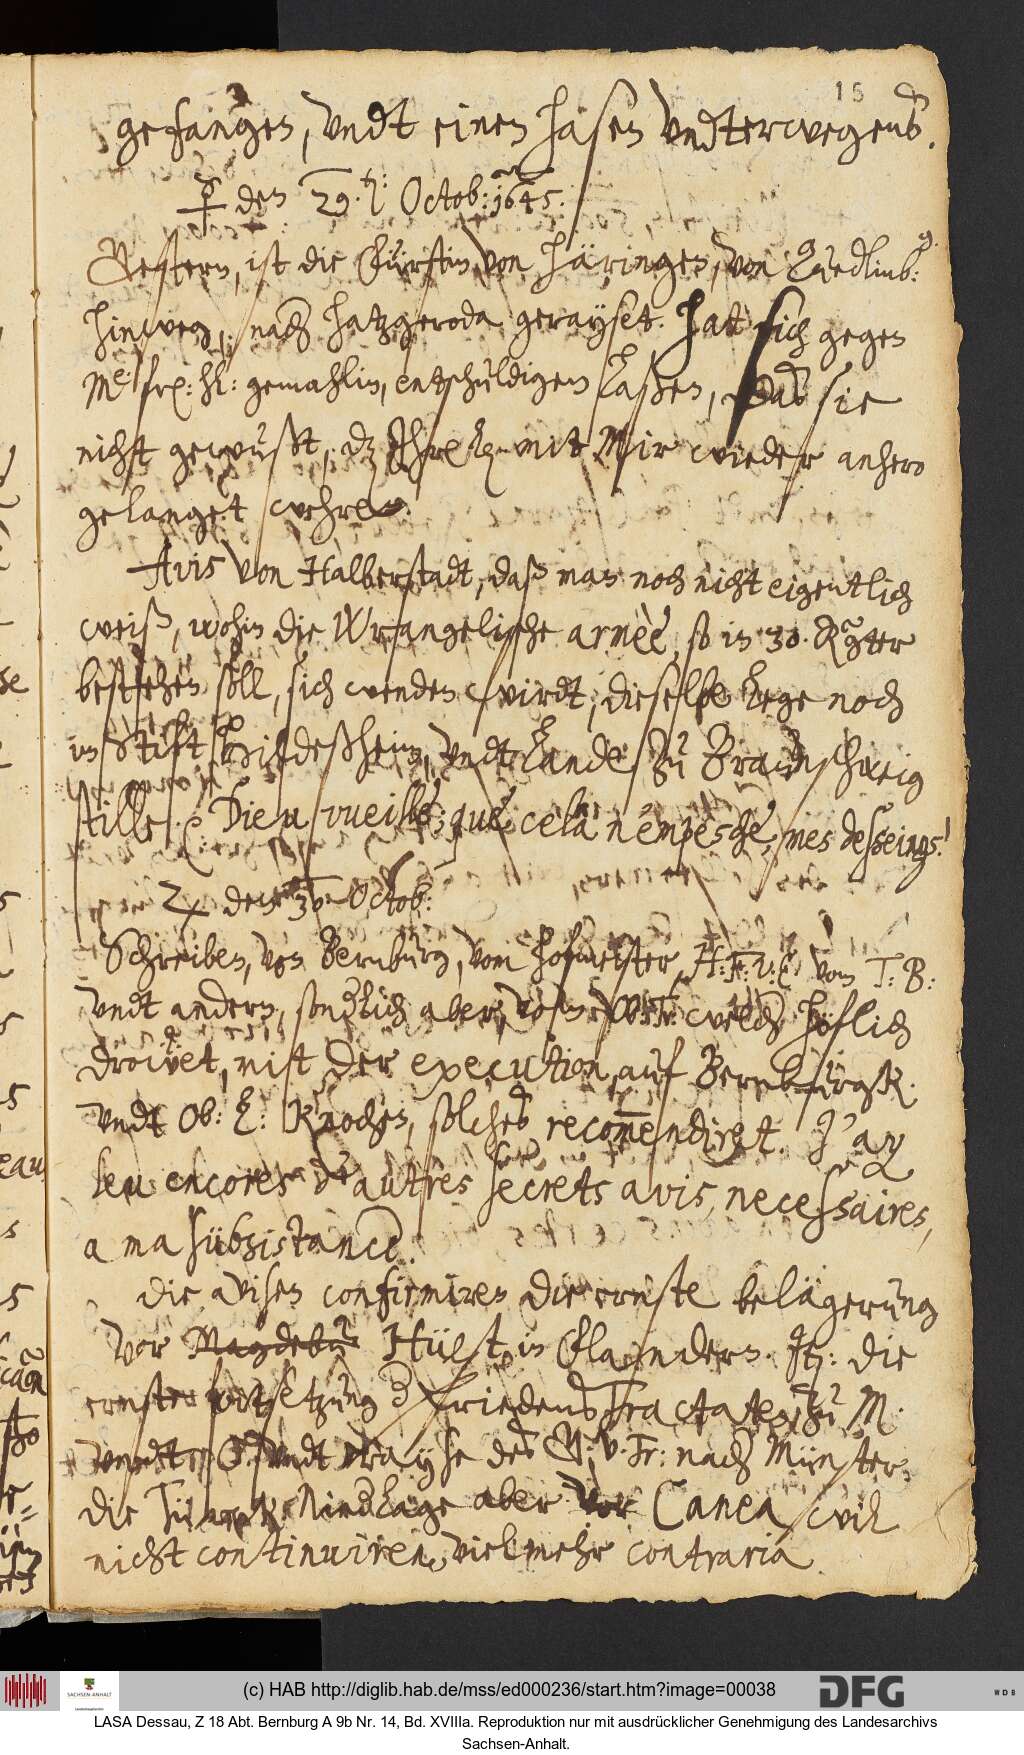 15
gefangen, undt einen hasen undterwegens.
☿ den 29. Octob: 1645.
Gestern, ist die Fürstin von Häringen, von Quedlinb:
hinweg, nach Hatzgeroda gerayset. hat sich gegen
Me: fre: hl: gemahlin, entschuldigen laßen, das sie
nicht gewußt, dz Ihre mit Mir wieder anhero
gelanget wehre.
Avis von Halberstadt, daß man noch nicht eigentlich
weiß, wohin die Wrangelische armèè, so in 30. Rgtter
bestehen soll, sich wenden wirdt, dieselbe liege noch
im Stift Hildeßheim, undt Lande zu Braunschweig
stille. Dieu vueille; que cela n'empesche, mes desseings!
♃ den 30. Octob:
Schreiben, von Bernburg, vom hofmeister H: E: von T: B:
undt andern, sondlich aber, von welch höflich
droüet, mit der execution, auf Bernburgk.
undt Ob: L: Knochen, solches recommendiret. J'ay
leu encores d'autres secrets avis, necessaires,
a ma subsistance.
Die avisen confirmiren die ernste belägerung
vor Magdeb Hülst, in Flandern. Jt: die
ernste fortsetzung d FriedensTractaten, zu M.
undt O. undt rayse des G: v. Tr: nach Münster.
die Niedlage aber vor Canea, wil
nicht continuiren, vielmehr contraria
(c) HAB http://diglib.hab.de/mss/ed000236/start.htm?image=00038
SACHSEN-ANHALT
DFG
WDB
LASA Dessau, Z 18 Abt. Bernburg A 9b Nr. 14, Bd. XVIIIa. Reproduktion nur mit ausdrücklicher Genehmigung des Landesarchivs
Sachsen-Anhalt.